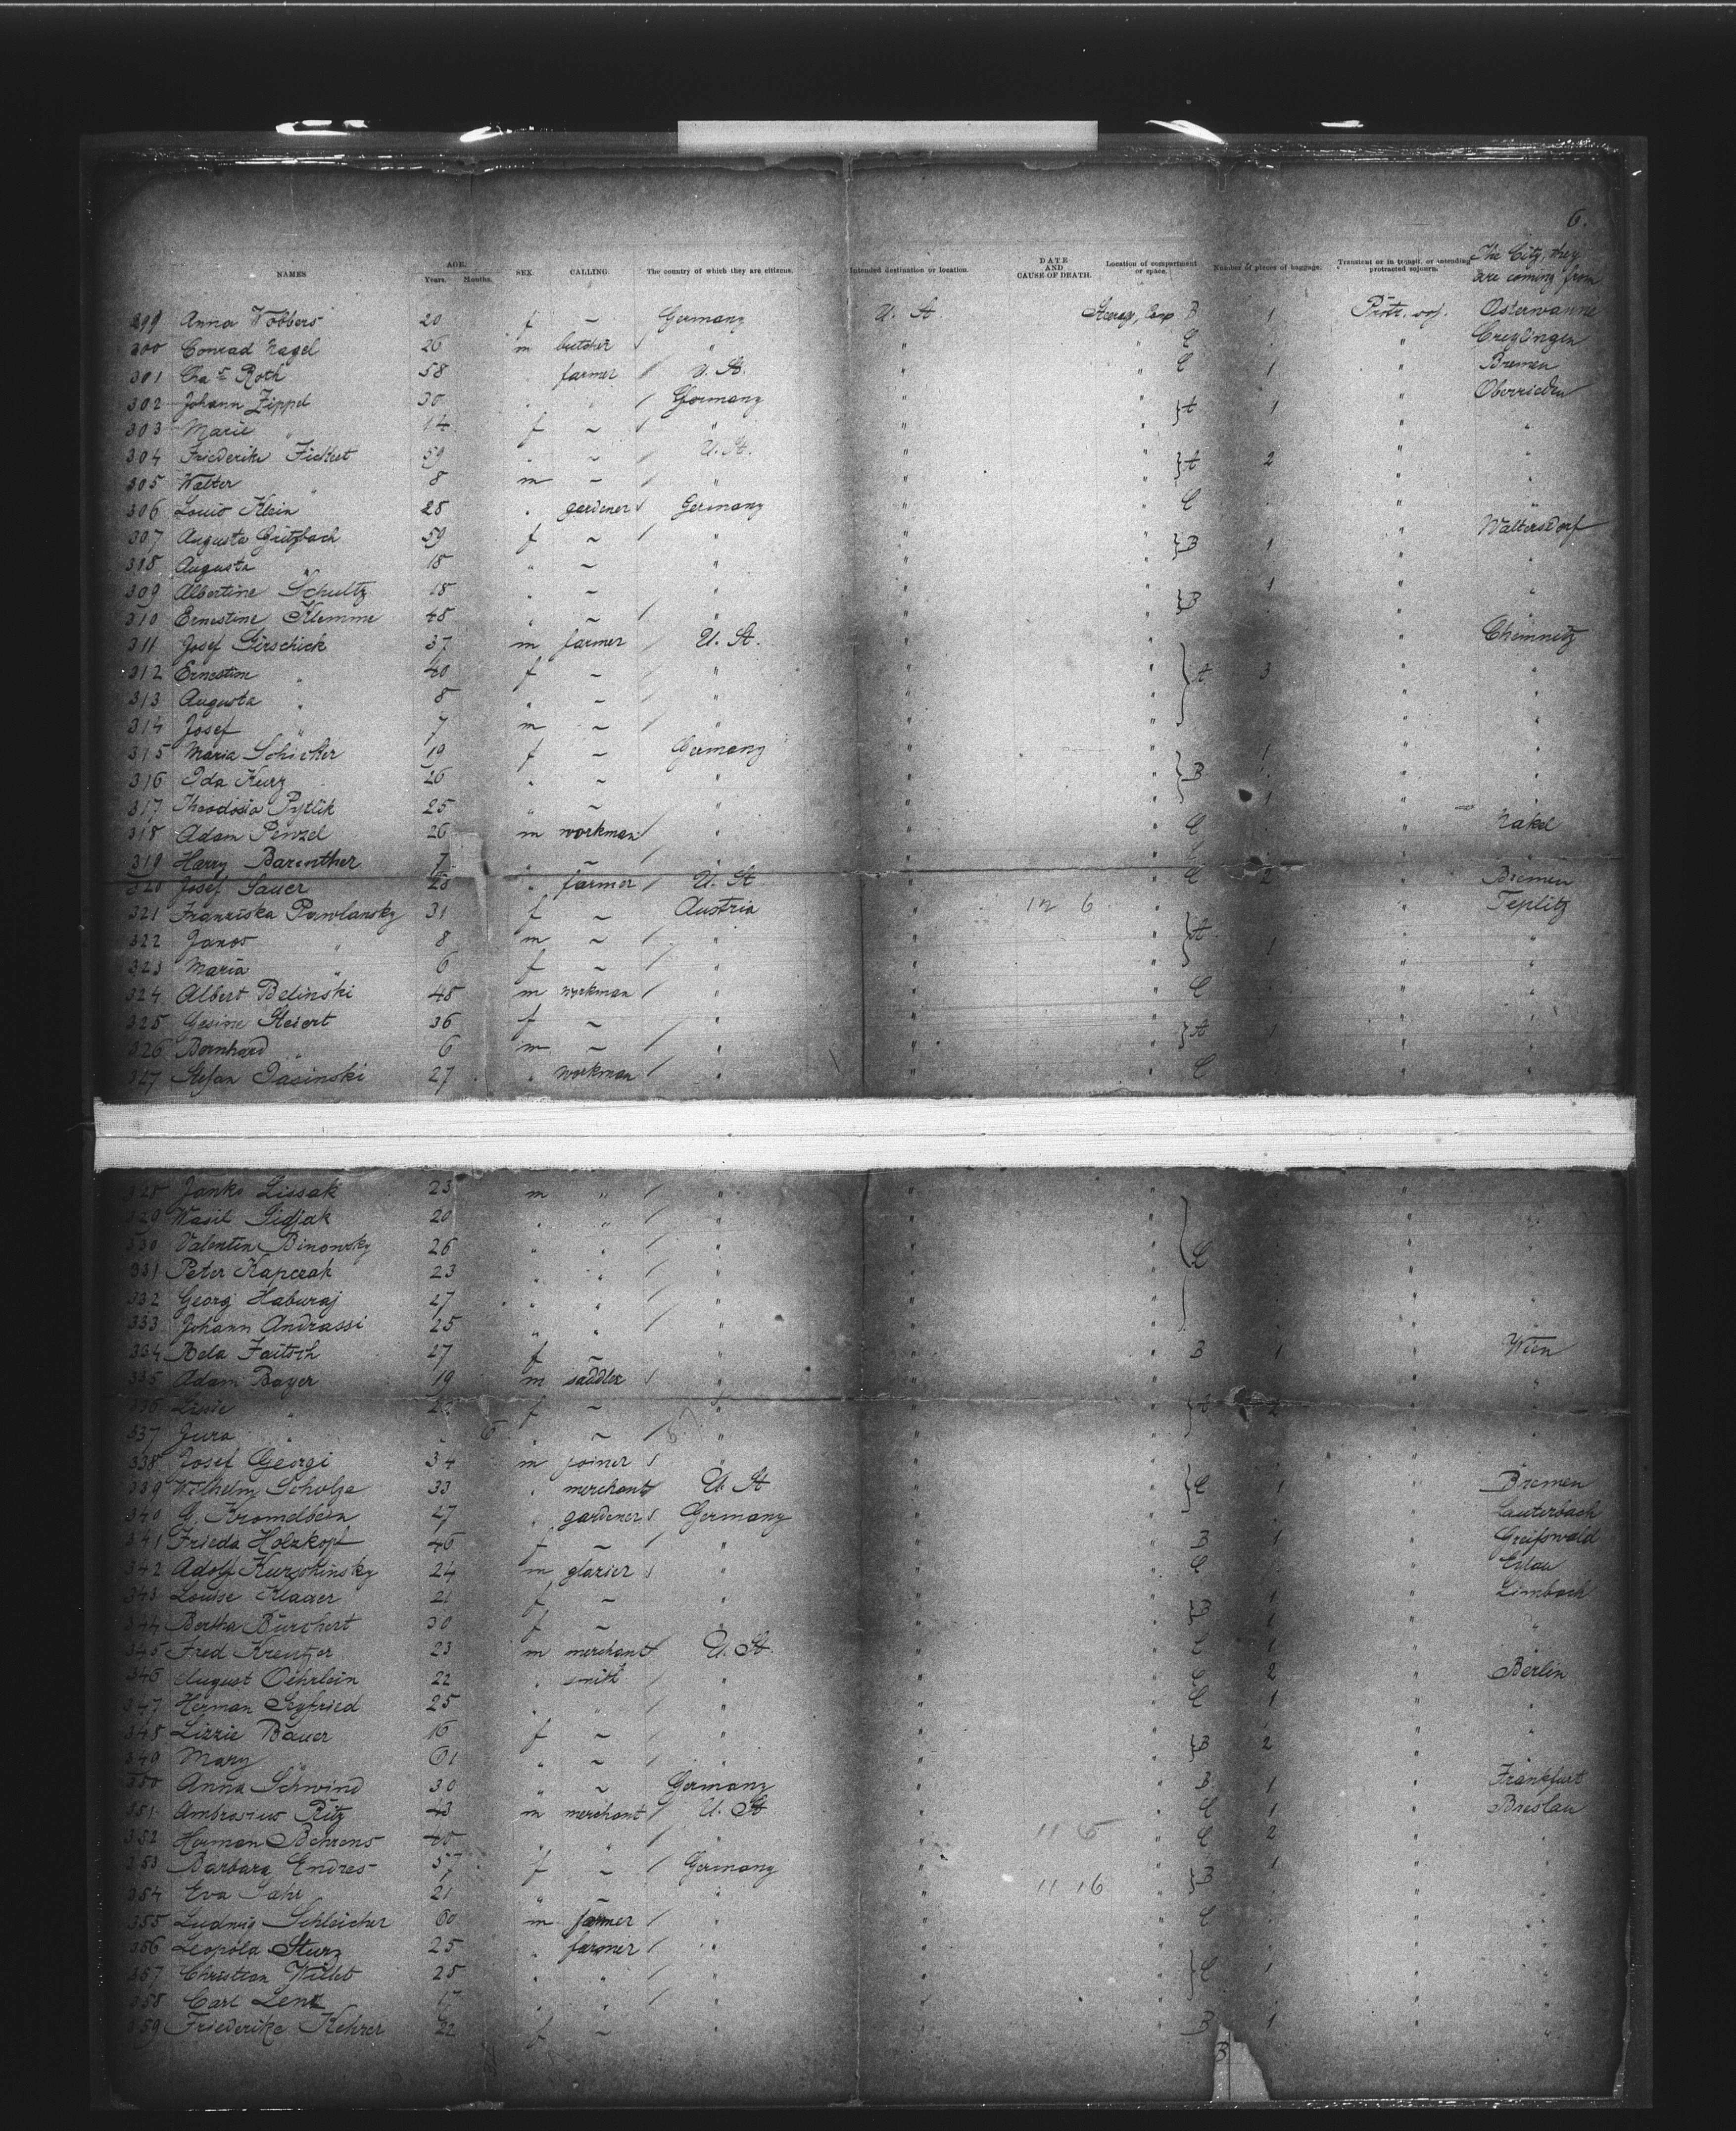 6.
NAMES AGE. Years. Months. SEX. CALLING. The country of which they are citizens. Intended destination or location. DATE AND CAUSE OF DEATH. Location of compartment or space. Number of pieces of baggage. Transient or in transit, or intending protracted sojourn. The City they are coming from
299 Anna Wobbers 20 f ~ Germany U. St. B 1 Protr. soj.
300 Conrad Nagel 26 m butcher " " " C " Creglingen
301 Chas Roth 58 farmer U. St. " " C 1 " Bremen
302 Johann Zippel 30 " Germany " " } A 1 " Oberrieden
303 Marie " 14 f ~ " " " " "
304 Friederike 59 " ~ U. St. " " } A 2 " "
305 Walter " 8 m ~ " " " " "
306 Louis Klein 28 " gardener Germany " " C " "
307 Augusta Gützbach 59 f ~ " " " } B 1 " Waltersdorf
308 Augusta " 18 " ~ " " " " "
309 Albertine Schultz 18 " ~ " " " } B 1 " "
310 Ernestine Klemme 48 " ~ " " " " "
311 Josef Girschick 37 m farmer U. St. " " " Chemnitz
312 Ernestine " 40 f ~ " " " } A 3 " "
313 Augusta " 8 " ~ " " " " "
314 Josef " 7 m ~ " " " " "
315 Maria 19 f ~ Germany " " 1 " "
316 Ida Kurz 26 " ~ " " " } B " "
317 Theodosia Pytlik 25 " ~ " " " 1 " "
318 Adam Penzel 26 m workman " " " C " Nakel
319 Harry Barenther 7 " ~ " " " C "
320 Josef Sauer 28 " farmer U. St " " C 2 " Bremen
321 Franziska Pawlansky 31 f ~ Austria " 12 6 " " Teplitz
322 Janos " 8 m ~ " " " } A 1 " "
323 Maria " 6 f ~ " " " " "
324 Albert Belinski 48 m workman " " " C " "
325 Gesine Steiert 36 f ~ " " " } A 1 " "
326 Bernhard " 6 m ~ " " " " "
327 Stefan Jasinski 27 " workman " " " C " "
328 Janko Lissak 23 m " " " " " "
329 Wasil Sidjak 20 " " " " " " "
330 Valentin Binowsky 26 " " " " " } C " "
331 Peter Kapczak 23 " " " " " " "
332 Georg Haburaj 27 " " " " " " "
333 Johann Andrassi 25 " " " " " " "
334 Bela Faitsch 27 f ~ " " " B 1 " Wien
335 Adam Bayer 19 m saddler " " " " "
336 Lissie " f ~ " " " } A 2 " "
337 Jura " 6 " ~ " " " " "
338 Josef Georgi 34 m joiner " " " " "
339 Wilhelm Scholze 33 " merchant U. St " " } C 1 " Bremen
340 G. Kromelbein 27 " gardener Germany " " " Lauterbach
341 Frieda Holzkopf 46 f ~ " " " B 1 " Greifswald
342 Adolf 24 m glazier " " " C "
343 Louise Klaaer 21 f ~ " " " 1 " Limbach
344 Bertha Burchert 30 f ~ " " " } B 1 " "
345 Fred Kreutzer 23 m merchant U. St. " " C 1 " "
346 August Oehrlein 22 " smith " " " C 2 " Berlin
347 Herman Segfried 25 " " " " " C 1 " "
348 Lizzie Bauer 16 f ~ " " " } B 2 " "
349 Mary " 61 " ~ " " " " "
350 Anna Schwind 30 " ~ Germany " " B 1 " Frankfurt
351 Ambrosius Ritz 43 m merchant U. St " " C 1 " Breslau
352 Herman Behrens 40 " " " " 11 6 " C 2 " "
353 Barbara Endres 57 f ~ Germany " " } B 1 " "
354 Eva 21 " ~ " " 11 16 " " "
355 Ludwig Schleicher 60 m farmer " " " C " "
356 Leopold Sturz 25 " farmer " " " " "
357 Christian 25 " " " " " } C 1 " "
358 Carl Lenz 17 " " " " " " "
359 Friederike Kehrer 22 f ~ " " " B 1 " "
B